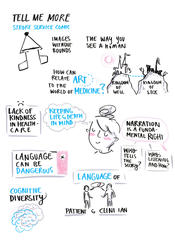 TELL ME MORE
STROKE SERVICE COMIC
IMAGES
WITHOUT
BOUNDS
THE WAY YOU
SEE A HUMAN
HOW CAN
RELATE ART
TO THE WORLD OF MEDICINE?
KINGDOM OF
WELL
KINGDOM OF
SICK
LACK OF
KINDNESS
IN HEALTH-
CARE
KEEPING
LIFE & DEATH
IN MIND
NARRATION
IS A FUNDA-
MENTAL RIGHT
LANGUAGE
CAN BE
DANGEROUS
WHO
TELLS
THE
STORY?
WHO'S
LISTENING
AND HOW?
LANGUAGE OF
COGNITIVE
DIVERSITY
PATIENT & CLINICIAN